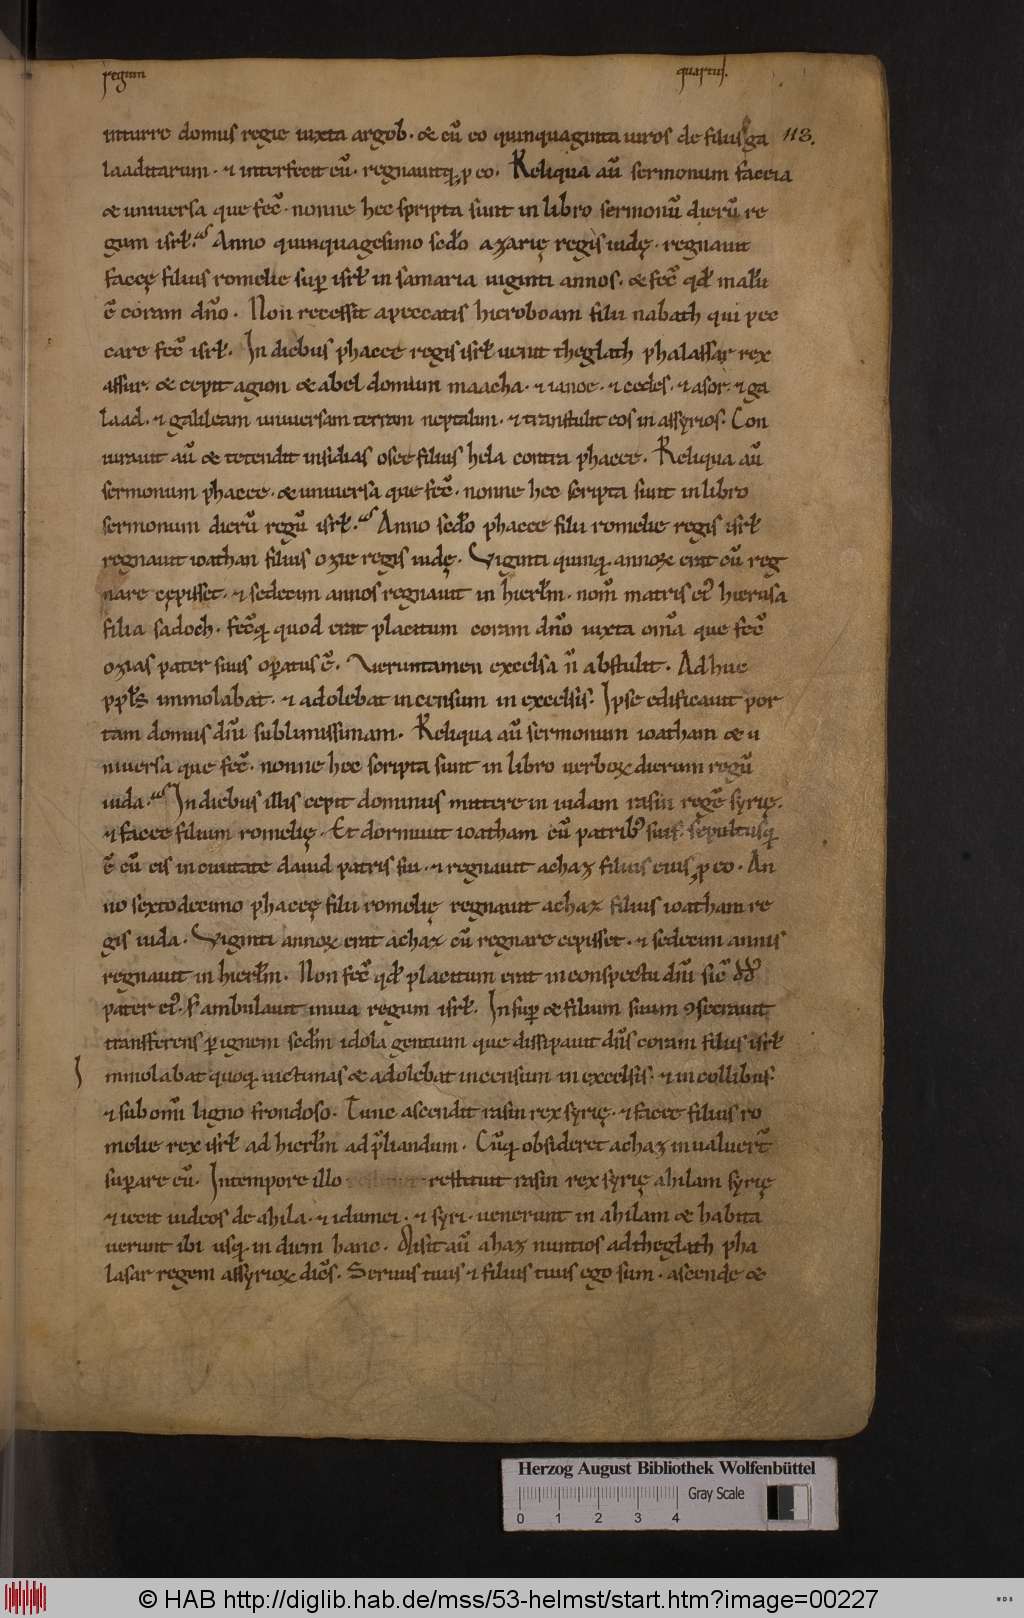 regum quartus.
inturre domus regie iuxta argob. & cū eo quinquaginta uiros de filiis ga 113.
laaditarum. ⁊ interfecit eū. regnauitq; p eo. Reliqua aū sermonum faceia
& uniuersa que fec̄. nonne hec scripta sunt in libro sermonū dierū re
gum isrł. Anno quinquagesimo scđo azarię regis iudę. regnauit
faceę filius romelie sup isrł in samaria uiginti annos. & fec̄ qđ malū
ē coram dn̄o. Non recessit a peccatis hieroboam filii nabath qui pec
care fec̄ isrł. In diebus phacee regis isrł uenit theglath phalassar rex
assur. & cepit agion & abel domum maacha. ⁊ ianoe. ⁊ cedes. ⁊ asor. ⁊ ga
laad. ⁊ galileam uniuersam terram neptalim. ⁊ transtulit eos in assyrios. Con
iurauit aū & tetendit insidias osee filius hela contra phacee. Reliqua aū
sermonum phacee. & uniuersa que fec̄. nonne hec scripta sunt in libro
sermonum dierū regū isrł. Anno scđo phacee filii romelie regis isrł
regnauit ioathan filius ozie regis iudę. Viginti quinq; annoꝝ erat cū reg
nare cępisset. ⁊ sedecim annos regnauit in hierłm. nom̄ matris eiꝰ hierusa
filia sadoch. fec̄q; quod erat placitum coram dn̄o iuxta om̄a que fec̄
ozias pater suus opatus ē. Veruntamen excelsa n̄ abstulit. Adhuc
ppłs immolabat. ⁊ adolebat incensum in excelsis. Ipse edificauit por
tam domus dn̄i sublimissimam. Reliqua aū sermonum ioatham & u
niuersa que fec̄. nonne hec scripta sunt in libro uerboꝝ dierum regū
iuda. In diebus illis cepit dominus mittere in iudam rasin regē syrię.
⁊ facee filium romelię. Et dormiuit ioatham cū patribꝰ suis. sepultusq;
ē cū eis in ciuitate dauid patris sui. ⁊ regnauit achaz filius eius p eo. An
no septodecimo phaceę filii romelię regnauit achaz filius ioatham re
gis iuda. Viginti annoꝝ erat achaz cū regnare cepisset. ⁊ sedecim annis
regnauit in hierłm. Non fec̄ qđ placitum erat in conspectu dn̄i sic̄ dđ
pater eiꝰ. s; ambulauit in uia regum isrł. Insup & filium suum ꝯsecrauit
transferens p ignem scđm idola gentium que dissipauit dn̄s coram filiis isrł
I mmolabat quoq; uictimas & adolebat incensum in excelsis. ⁊ in collibus.
⁊ sub omī ligno frondoso. Tunc ascendit rasin rex syrię. ⁊ facee filius ro
melie rex isrł ad hierłm ad p̄liandum. Cūq; obsideret achaz n̄ ualuer̄t
supare eū. In tempore illo restituit rasin rex syrię ahilam syrię
⁊ iecit iudeos de ahila. ⁊ idumei. ⁊ syri. uenerunt in ahilam & habita
uerunt ibi usq; in diem hanc. Misit aū ahaz nuntios ad theglath pha
lasar regem assyrioꝝ dic̄s. Seruus tuus ⁊ filius tuus ego sum. ascende &
Herzog August Bibliothek Wolfenbüttel
Gray Scale
0 1 2 3 4
© HAB http://diglib.hab.de/mss/53-helmst/start.htm?image=00227